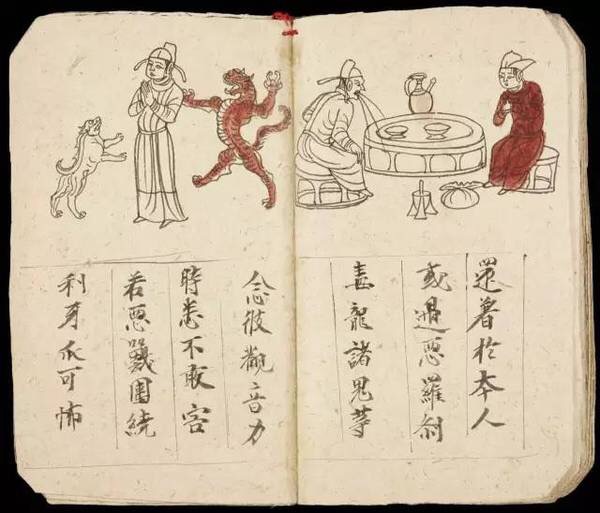 還著扵本人
或遇悪羅刹
毒龍諸鬼等
念彼觀音力
時悉不敢害
若悪獸圍繞
利牙爪可怖